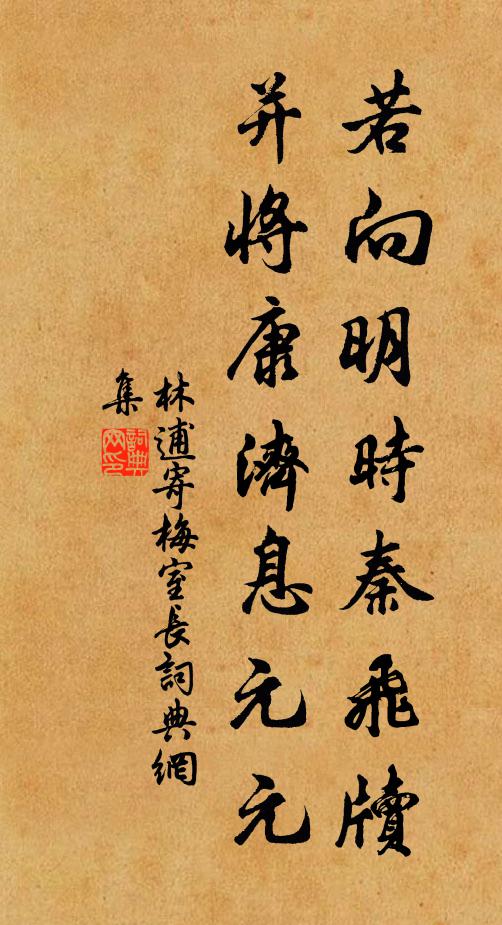 若向明時秦飛牘
并將康濟息元元
林逋寄梅室長詞典網
集
詞典網印